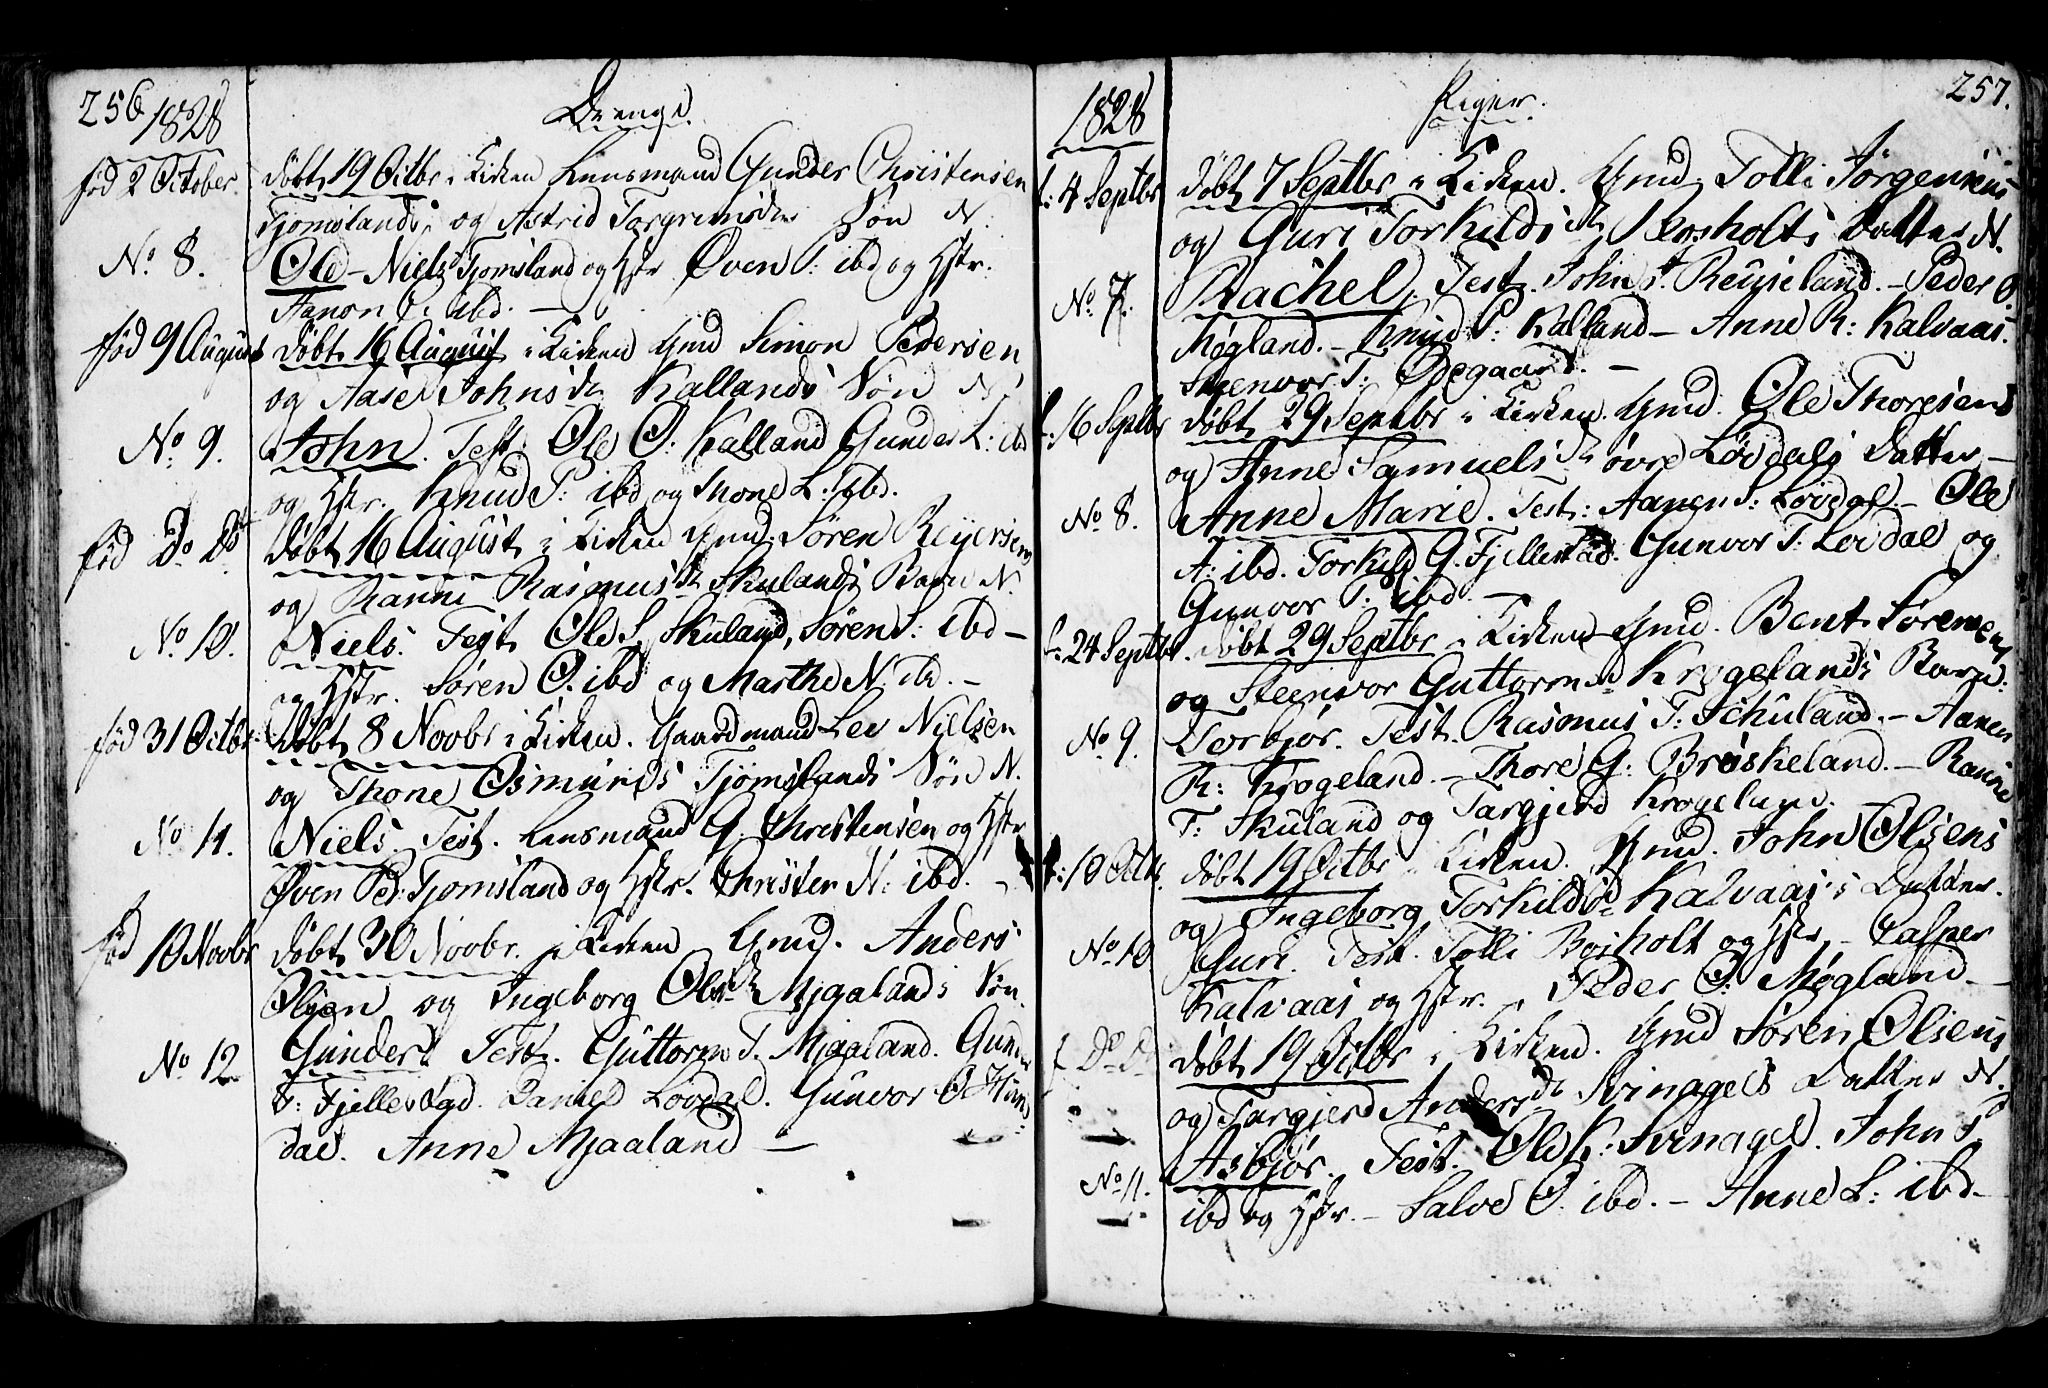 256
1828
Drenge.
fød 2 October.
døbt 19 Octbr i Kirken Lensmand Gunder Christensen
Tjomslands, og Astrid Torgrimsdr Søn N.
No. 8.
Ole – Niels Tjomsland og Hstr. Øven P: ibd og Hstr.
Aanon C. ibd. –
fød 9 August
døbt 16 August i Kirken Gmd Simon Pedersen
og Aase Johnsdr Kallands Søn N.
No. 9.
John. Test. Ole O. Kalland Gunder L: ibd
og Hstr. Knud P: ibd og Thone L: ibd.
fød Do Do
døbt 16 August i Kirken Gmd. Søren Reijersen
og Ranni Rasmusdr Skulands Barn N.
No 10.
Niels. Test Ole S. Skuland, Søren S: ibd –
og Hstr. Søren O. ibd og Marthe N. ibd. –
fød 31 Octbr.
døbt 8 Novbr i Kirken. Gaardmand Lee Nielsen
og Thone Osmunds Tjomslands Søn N.
No 11.
Niels. Test. Lensmand G. Christensen og Hstr
Øven Ped: Tjomsland og Hstr. Christen N: ibd. –
fød 10 Novbr
døbt 30 Novbr. i Kirken Gmd. Anders
Olsen og Ingeborg Olsdr Mjaalands Søn.
No 12
Gunder. Test. Guttorm T. Mjaaland. Gunder
T: Fjellestad. Daniel Lovdal. Gunvor O. Hun-
dal. Anne Mjaaland –
257.
1828
Piger.
f: 4 Septbr
døbt 7 Septbr i Kirken. Gmd. Tolli Jørgensens
og Guri Torkildsdr Bosholts Datter N.
No 7.
Rachel. Test. John S. Reuseland. – Peder O.
Møgland. – Knud P: Kalland – Anne R: Kalvaas.
Steenvor T: Ødegaard. –
f: 16 Septbr
døbt 29 Septbr i Kirken. Gmd. Ole Thoresens
og Anne Samuelsdr øvre Lovdals Datter –
No 8.
Anne Marie. Test: Aanen S. Lovdal. – Ole
A: ibd. Torkild G. Fjellestad. Gunvor T: Lovdal og
Gunvor P. ibd. –
f. 24 Septbr.
døbt 29 Septbr i Kirken Gmd. Bent Sørensens
og Steenvor Guttormsd Krogelands Barn:
No 9.
Torbjør. Test. Rasmus T: Skuland. – Aanen
R: Krogeland. – Thore G: Brøskeland. – Ranni
T: Skuland og Targjerd Krogeland.
f: 10 Octbr.
døbt 19 Octbr i Kirken. Gmd. John Olsens
og Ingeborg Torkildsd Kalvaas's Datter.
No 10
Guri. Test. Tolli Bosholt og Hstr. – Casper
Kalvaas og Hstr. – Peder O. Møgland –
f Do Do
døbt 19 Octbr i Kirken. Gmd Søren Olsens
og Targjerd Andersdr Svinagels Datter N.
No 11.
Asbjør. Test. Ole K: Svinagel. John S.
ibd og Hstr. – Salve O. ibd. – Anne L: ibd –